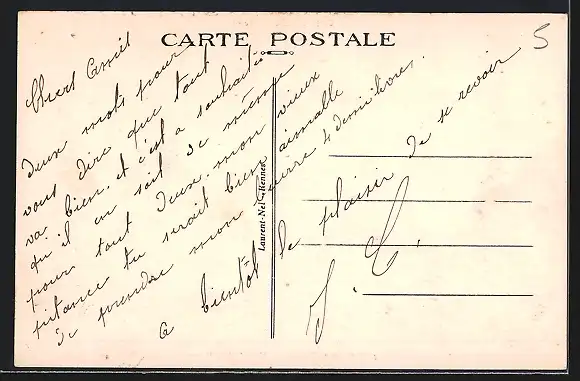 CARTE POSTALE
5
Chers Amis
Deux mots pour
vous dire que tout
va bien et c'est a souhaiter
qu'il en soit de même
pour tout Jesus. mon vieux
pitance tu serait bien aimable
de prendre mon beurre 4 demi livres.
a bientôt le plaisir de se revoir
J. C.
Laurent-Nel Rennes